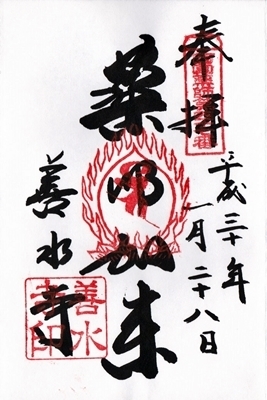 奉拝
平成三十年
一月二十八日
薬師如来
善水寺
善水
寺印